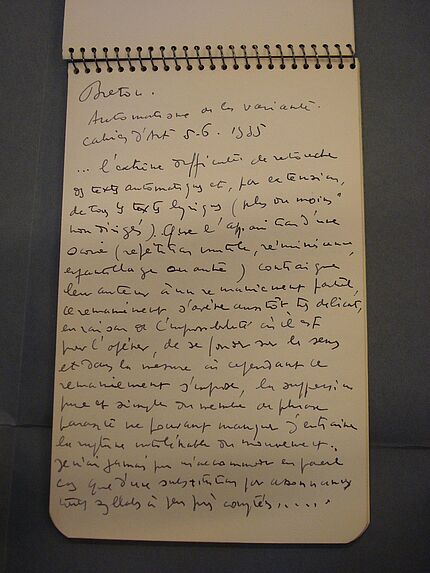 Breton.
Automatisme de la variante.
Cahiers d'Art 5-6. 1935
... l'extrême difficulté de retouche
des textes automatiques et, par extension,
de tous les textes lyriques (plus ou moins
non dirigés). Que l'apparition d'une
scorie (répétition inutile, réminiscence,
enfantillage ou autre) contraigne
leur auteur à un remaniement partiel,
ce remaniement s'avère aussitôt très délicat,
en raison de l'impossibilité où il est
pour l'opérer, de se fonder sur le sens
et dans la mesure où cependant ce
remaniement s'impose, la suppression
pure et simple du membre de phrase
parasite ne pouvant manquer d'entraîner
la rupture intolérable du mouvement.
Je n'ai jamais pu m'accommoder en pareil
cas que d'une substitution par assonances
syllabes à peu près comptés.....